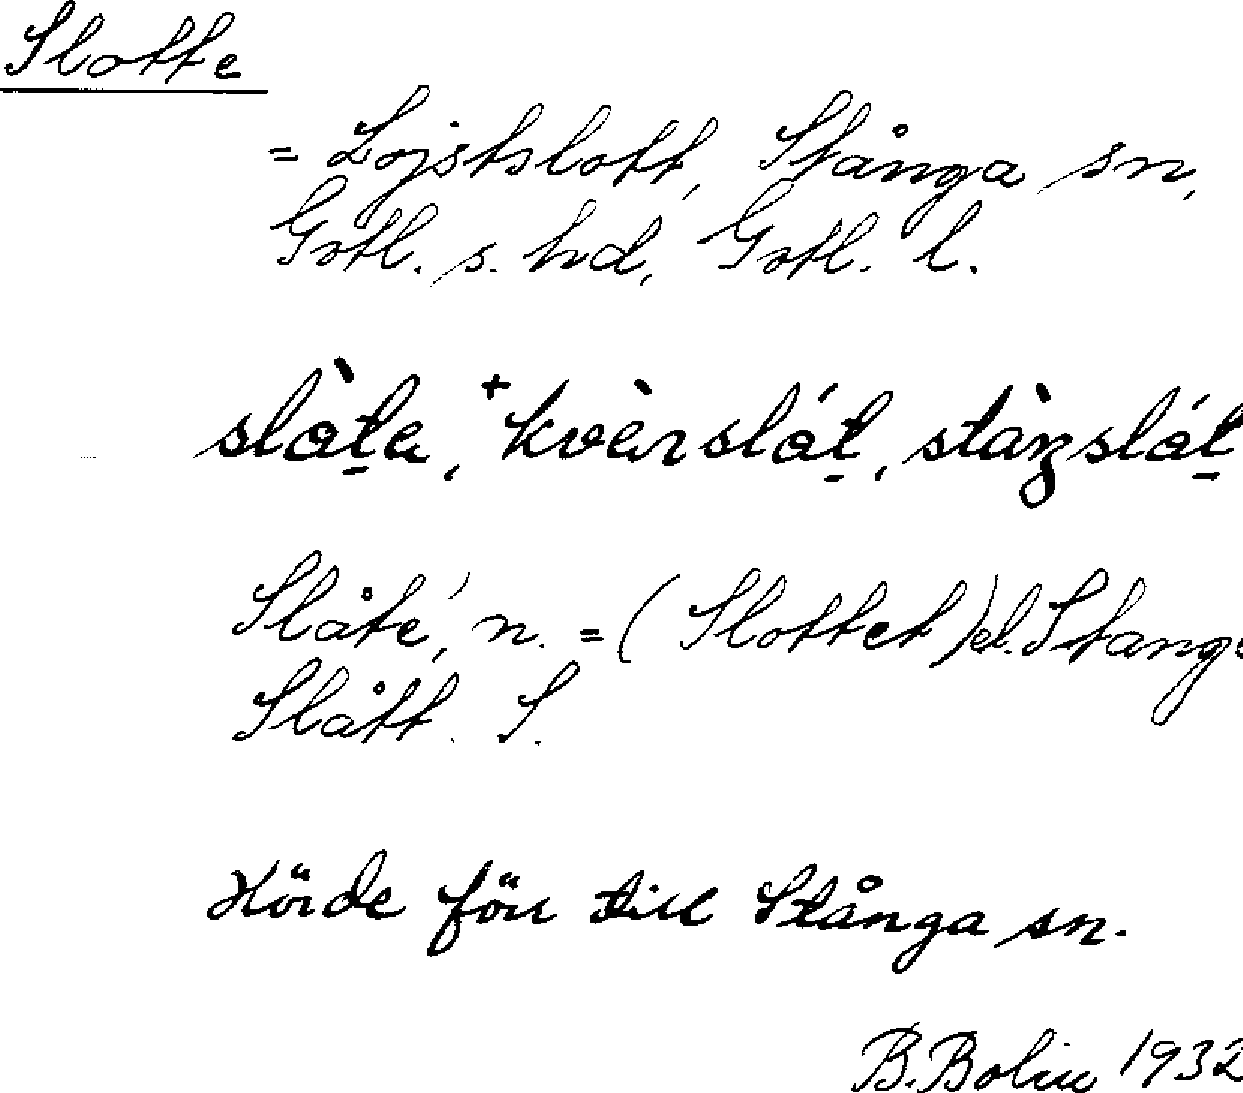 Slotte
= Lojstslott, Stånga sn,
Gotl. s. hd, Gotl. l.
slòta, ⁺kvèrslót, stàŋslót
Slåte', n. = (Slottet) el. Stang
Slått. S.
Hörde förr till Stånga sn.
B. Bolin 1932